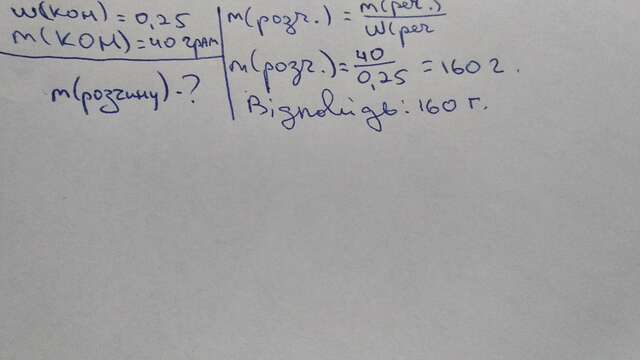 w(KOH) = 0,25
m(KOH) = 40 грам
m(розчину) - ?
m(розч.) = m(реч.) / w(реч
m(розч.) = 40 / 0,25 = 160 г.
Відповідь: 160 г.